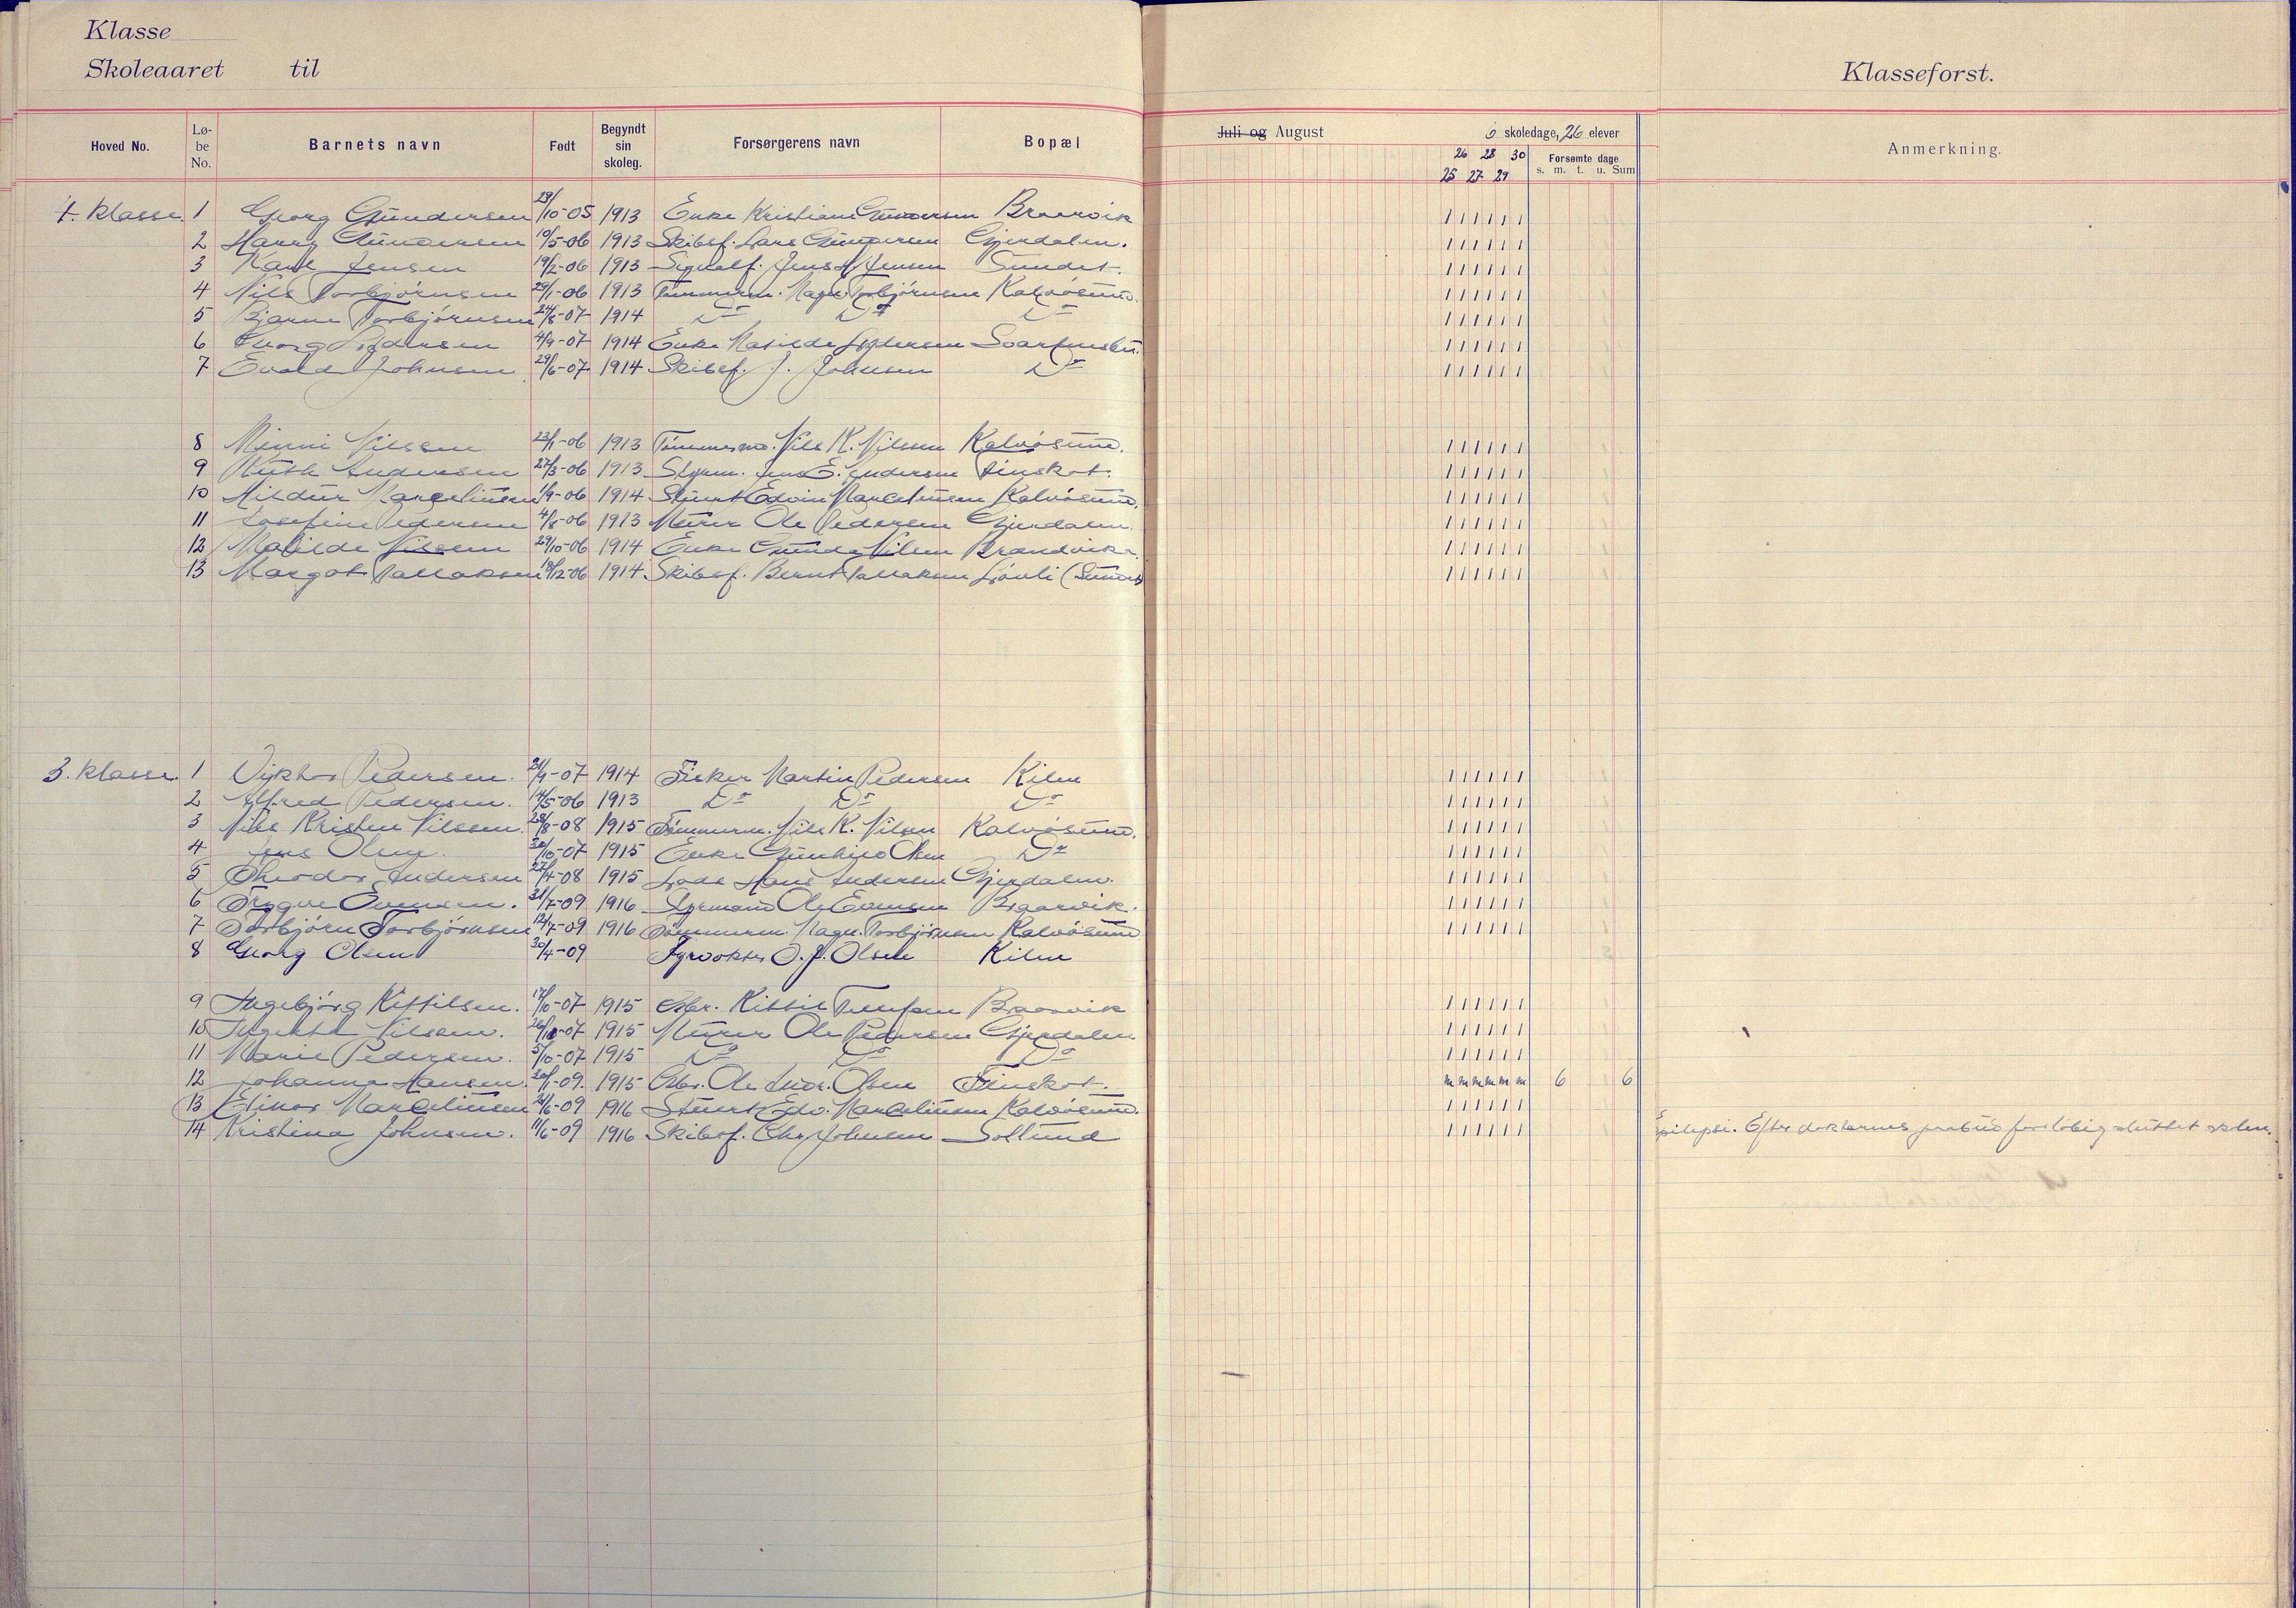 Klasse
Skoleaaret til
Klasseforst.
Hoved No. Lø-be No. Barnets navn Født Begyndt sin skoleg. Forsørgerens navn Bopæl Juli og August 6 skoledage, 26 elever Anmerkning.
26 28 30 Forsømte dage
25 27 29 s. m. t. u. Sum
4. klasse 1 Georg Gundersen 29/10-05 1913 Enke Kristiane Gundersen Braarvik 1 1 1 1 1 1
2 Harry Gundersen 10/5-06 1913 Skibsf. Lars Gundersen Gjerdalen. 1 1 1 1 1 1
3 Karl Jensen 19/2-06 1913 Jens Jensen Sundet. 1 1 1 1 1 1
4 Nils Torbjørnsen 29/1-06 1913 Tømmerm. Magn. Torbjørnsen Kalvøsund. 1 1 1 1 1 1
5 Bjarne Torbjørnsen 24/8-07 1914 Do Do Do 1 1 1 1 1 1
6 Georg Pedersen 4/9-07 1914 Enke Matilde Pedersen 1 1 1 1 1 1
7 Evald Johnsen 29/6-07 1914 Skibsf. J. Johnsen Do 1 1 1 1 1 1
8 Minni Nilssen 23/1-06 1913 Tømmerm. Nils K. Nilssen Kalvøsund. 1 1 1 1 1 1
9 Ruth Andersen 27/3-06 1913 Styrm. Jens E. Andersen Finskot. 1 1 1 1 1 1
10 Hildur Marcelinsen 1/9-06 1914 Stuert Edvin Marcelinsen Kalvøsund. 1 1 1 1 1 1
11 Josefine Pedersen 4/8-06 1913 Murer Ole Pedersen Gjerdalen. 1 1 1 1 1 1
12 Matilde Nilssen 29/10-06 1914 Enke Gunda Nilsen 1 1 1 1 1 1
13 Margot Tallaksen 18/12-06 1914 Skibsf. Bernt Tallaksen Løvli (Sundet) 1 1 1 1 1 1
3. klasse. 1 Viktor Pedersen. 21/9-07 1914 Fisker Martin Pedersen Kilen 1 1 1 1 1 1
2 Alfred Pedersen. 14/5-06 1913 Do Do Do 1 1 1 1 1 1
3 Nils Kristen Nilssen. 28/8-08 1915 Tømmerm. Nils K. Nilsen Kalvøsund. 1 1 1 1 1 1
4 Jens Olsen. 30/10-07 1915 Enke Gunhild Olsen Do 1 1 1 1 1 1
5 Theodor Andersen 27/4-08 1915 Lods Hans Andersen Gjerdalen. 1 1 1 1 1 1
6 Trygve Evensen. 31/7-09 1916 Styrmand Ole Evensen Braarvik. 1 1 1 1 1 1
7 Torbjørn Torbjørnsen 12/7-09 1916 Tømmerm. Magn. Torbjørnsen Kalvøsund 1 1 1 1 1 1
8 Georg Olsen 30/4-09 Fyrvokter O. J. Olsen Kilen
9 Ingebjørg Kittilsen. 17/10-07 1915 Arbr. Kittil Braarvik 1 1 1 1 1 1
10 Nilssen. 1915 Murer Ole Pedersen Gjerdalen 1 1 1 1 1 1
11 Marie Pedersen. 5/10-07 1915 Do Do Do 1 1 1 1 1 1
12 Johanna Hansen. 30/1-09. 1915 Arbr. Ole Andr. Olsen Finskot. m m m m m m 6 6
13 Elinor Marcelinsen 21/6-09 1916 Stuert Edv. Marcelinsen Kalvøsund. 1 1 1 1 1 1
14 Kristina Johnsen. 11/6-09 1916 Skibsf. Chr. Johnsen Sollund 1 1 1 1 1 1 Epilepsi. Efter doktorens paabud foreløbig sluttet skolen.